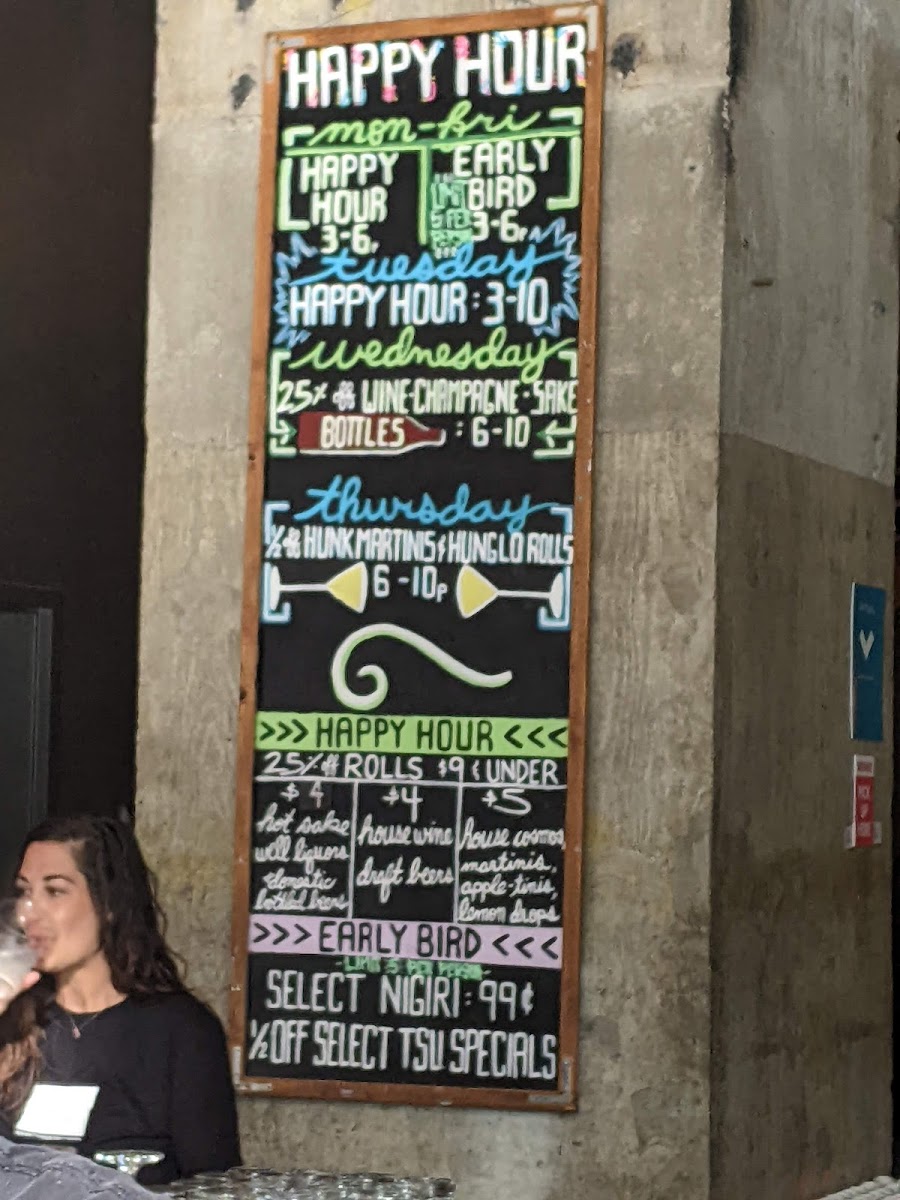 HAPPY HOUR
mon-fri
HAPPY
HOUR
3-6p
EARLY
BIRD
3-6p
LIMIT
5 PER
PERSON
tuesday
HAPPY HOUR: 3-10
wednesday
25% off WINE-CHAMPAGNE-SAKE
BOTTLES : 6-10
thursday
½ off HUNK MARTINIS & HUNG LO ROLLS
6-10p
>>> HAPPY HOUR <<<
25% off ROLLS $9 & UNDER
$4
hot sake
well liquors
domestic
bottled beers
$4
house wine
draft beers
$5
house cosmos,
martinis,
apple-tinis,
lemon drops
>>> EARLY BIRD <<<
-LIMIT 5 PER PERSON-
SELECT NIGIRI: 99¢
½ OFF SELECT TSU SPECIALS
PICK
UP